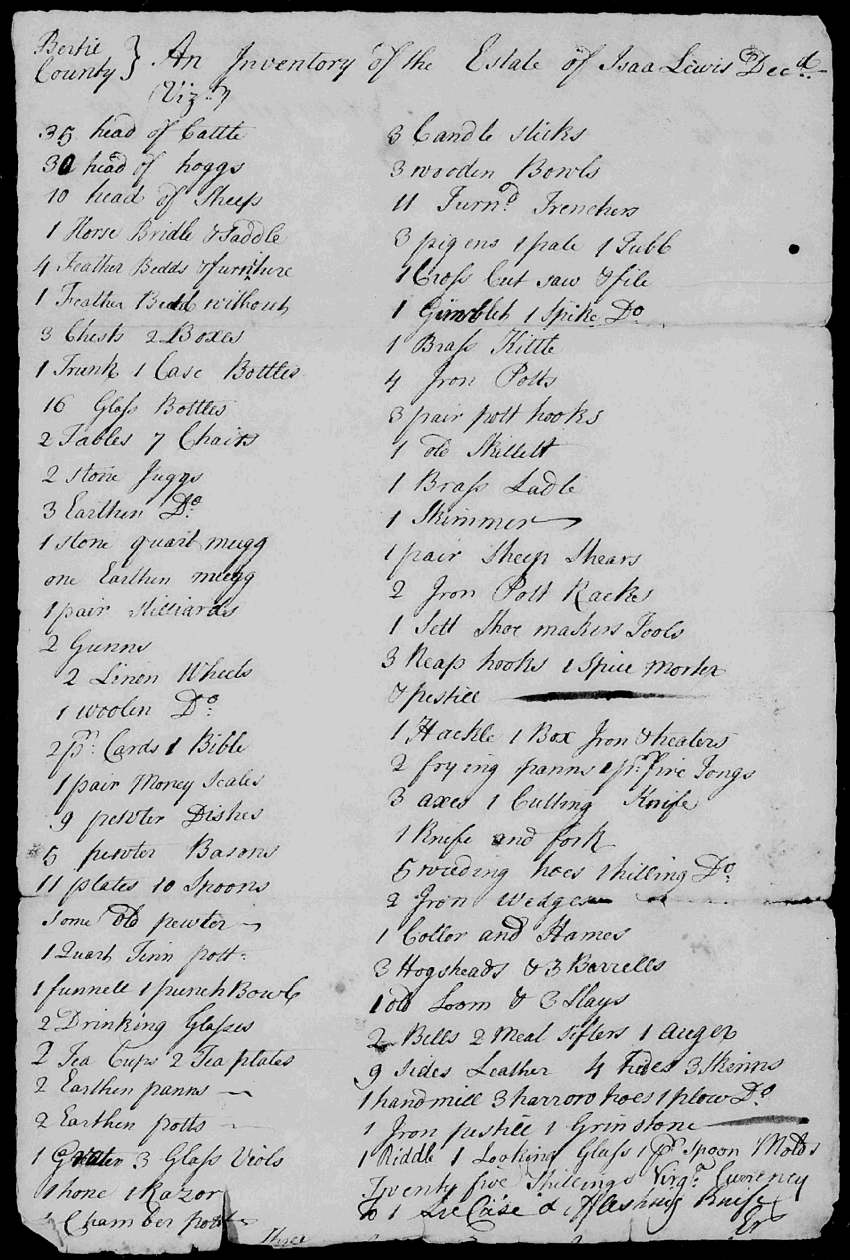 Bertie
County } An Inventory of the Estate of Isaa Lewis Decd.
(Vizt)
35 head of Cattle
30 head of hoggs
10 head of Sheep
1 Horse Bridle & Saddle
4 Feather Bedds & furniture
1 Feather Bedd without
3 Chests 2 Boxes
1 Trunk 1 Case Bottles
16 Glass Bottles
2 Tables 7 Chairs
2 stone Juggs
3 Earthen Do.
1 stone quart mugg
one Earthen mugg
1 pair stilliards
2 Gunns
2 Linen Wheels
1 woolen Do.
2 pr. Cards 1 Bible
1 pair Money Scales
9 pewter Dishes
5 pewter Basons
11 plates 10 Spoons
Some old pewter
1 Quart Tinn pott
1 funnell 1 punch Bowl
2 Drinking Glasses
2 Tea Cups 2 Tea plates
2 Earthen panns
2 Earthen potts
1 Grater 3 Glass Viols
1 hone 1 Razor
Chamber pott
Three
3 Candle sticks
3 wooden Bowls
11 Turnd. Trenchers
3 pigens 1 pale 1 Tubb
1 Cross Cut saw & file
1 Gimblet 1 Spike Do
1 Brass Kittle
4 Iron Potts
3 pair pott hooks
1 old Skillett
1 Brass Ladle
1 Skimmer
1 pair Sheep Shears
2 Iron Pott Racks
1 Sett Shoe makers Tools
3 Reap hooks 1 Spice Morter
& pestill
1 Hackle 1 Box Iron & heaters
2 frying panns 1 pr. fire Tongs
3 axes 1 Cutting Knife
1 Knife and fork
5 weeding hoes 1 hilling Do.
2 Iron Wedges
1 Coller and Hames
3 Hogsheads & 3 Barrells
1 old Loom & 3 Slays
2 Bells 2 Meal Sifters 1 auger
9 Sides Leather 4 hides 3 Skinns
1 hand mill 3 harrow hoes 1 plow Do
1 Iron pestill 1 Grinstone
1 Riddle 1 Looking Glass 1 pr. Spoon Molds
Twenty five Shillings Virga. Currency
to 1 Case & fleshing Knife
Er